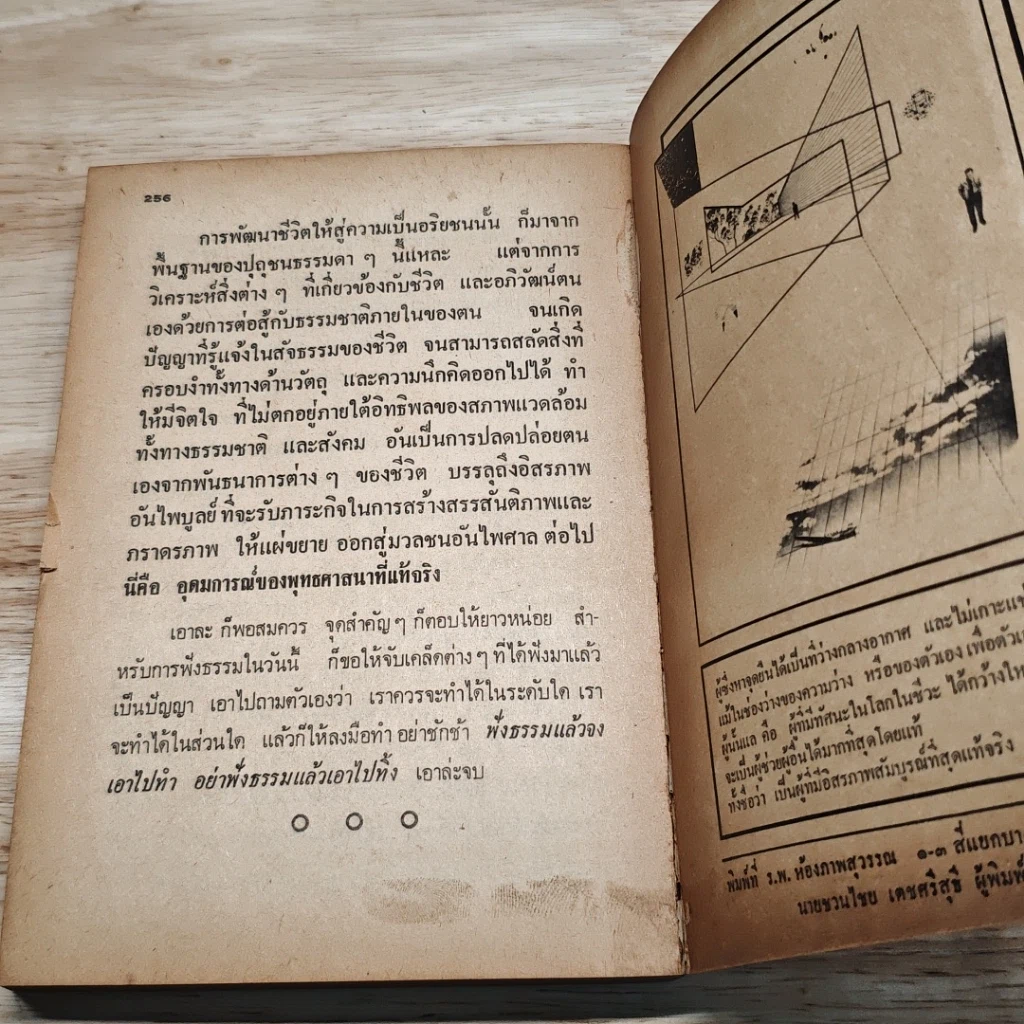 256
การพัฒนาชีวิตให้สู่ความเป็นอริยชนนั้น ก็มาจาก
พื้นฐานของปุถุชนธรรมดา ๆ นี้แหละ แต่จากการ
วิเคราะห์สิ่งต่าง ๆ ที่เกี่ยวข้องกับชีวิต และอภิวัฒน์ตน
เองด้วยการต่อสู้กับธรรมชาติภายในของตน จนเกิด
ปัญญาที่รู้แจ้งในสัจธรรมของชีวิต จนสามารถสลัดสิ่งที่
ครอบงำทั้งทางด้านวัตถุ และความนึกคิดออกไปได้ ทำ
ให้มีจิตใจ ที่ไม่ตกอยู่ภายใต้อิทธิพลของสภาพแวดล้อม
ทั้งทางธรรมชาติ และสังคม อันเป็นการปลดปล่อยตน
เองจากพันธนาการต่าง ๆ ของชีวิต บรรลุถึงอิสรภาพ
อันไพบูลย์ ที่จะรับภาระกิจในการสร้างสรรสันติภาพและ
ภราดรภาพ ให้แผ่ขยาย ออกสู่มวลชนอันไพศาล ต่อไป
นี่คือ อุดมการณ์ของพุทธศาสนาที่แท้จริง
เอาละ ก็พอสมควร จุดสำคัญ ๆ ก็ตอบให้ยาวหน่อย สำ-
หรับการฟังธรรมในวันนี้ ก็ขอให้จับเคล็ดต่าง ๆ ที่ได้ฟังมาแล้ว
เป็นปัญญา เอาไปถามตัวเองว่า เราควรจะทำได้ในระดับใด เรา
จะทำได้ในส่วนใด แล้วก็ให้ลงมือทำ อย่าชักช้า ฟังธรรมแล้วจง
เอาไปทำ อย่าฟังธรรมแล้วเอาไปทิ้ง เอาล่ะจบ
ผู้ซึ่งหาจุดยืนได้เป็นที่ว่างกลางอากาศ และไม่เกาะ
แม้ในช่องว่างของความว่าง หรือของตัวเอง เพื่อตัว
ผู้นั้นแล คือ ผู้ที่มีทัศนะในโลกในชีวะ ได้กว้าง
จะเป็นผู้ช่วยผู้อื่นได้มากที่สุดโดยแท้
ทั้งชื่อว่า เป็นผู้ที่มีอิสรภาพสมบูรณ์ที่สุดแท้จริง
พิมพ์ที่ ร.พ. ห้องภาพสุวรรณ ๑-๓ สี่แยก
นายชวนไชย เตชศรีสุธี ผู้พิมพ์